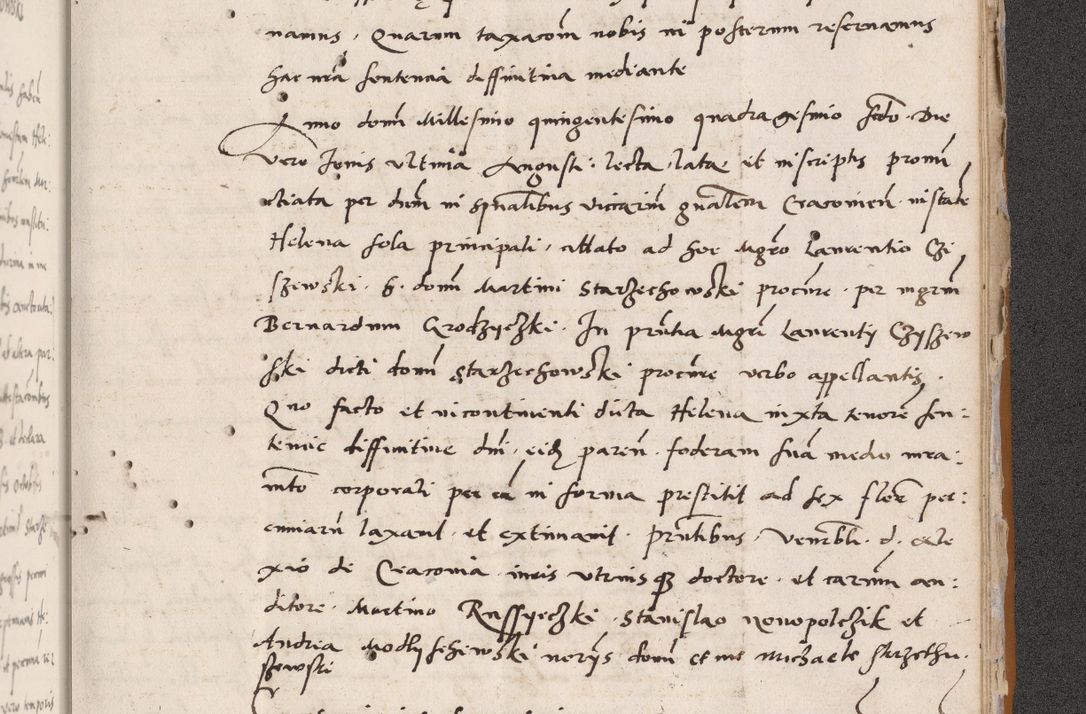 namus, Quarum taxacom̃ nobis in posterum reservamus
hac nr̃a sententia diffinitiva mediante
Anno domĩ Millesimo quingentesimo quadragesimo scdo. Die
vero Jovis ultima Augusti. lecta lata et in scriptis promũ
ctiata per dnm̃ in spũalibus vicariũ gñalem Cracovieñ. instate
Helena sola principali, ablato ad hoc Mgr̃o Laurentio Czi
szewski. G. domĩ Martini Starzechowski procũre. per mgrm̃
Bernardum Grodzyczki. In prñtia Mgri Laurentÿ Czyszew
ski dicti domĩ Starzechowski procũre verbo appellantis.
Quo facto et incontinenti dicta Helena iuxta tenorẽ sen:
tentie diffinitive dñi. eidẽ pareñ. foderam suã medio iura:
mẽto corporali per eã in forma prestitit ad sex floreñ pec:
cuniarũ taxavit. et extimavit. prñtibus. Veneñbli. d. Ale
xio de Cracovia. iuris utriusqʒ doctore. et causarum au:
ditore. Martino Russyeczki. Stanislao Novopolczik et
Andrea Modlyschewski notrÿs domĩ et me Michaele Skrzethu.
szewski